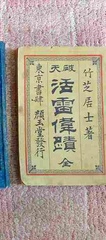 竹芝居士著
破天
活雷偉蹟
全
東京書肆 顔玉堂發行